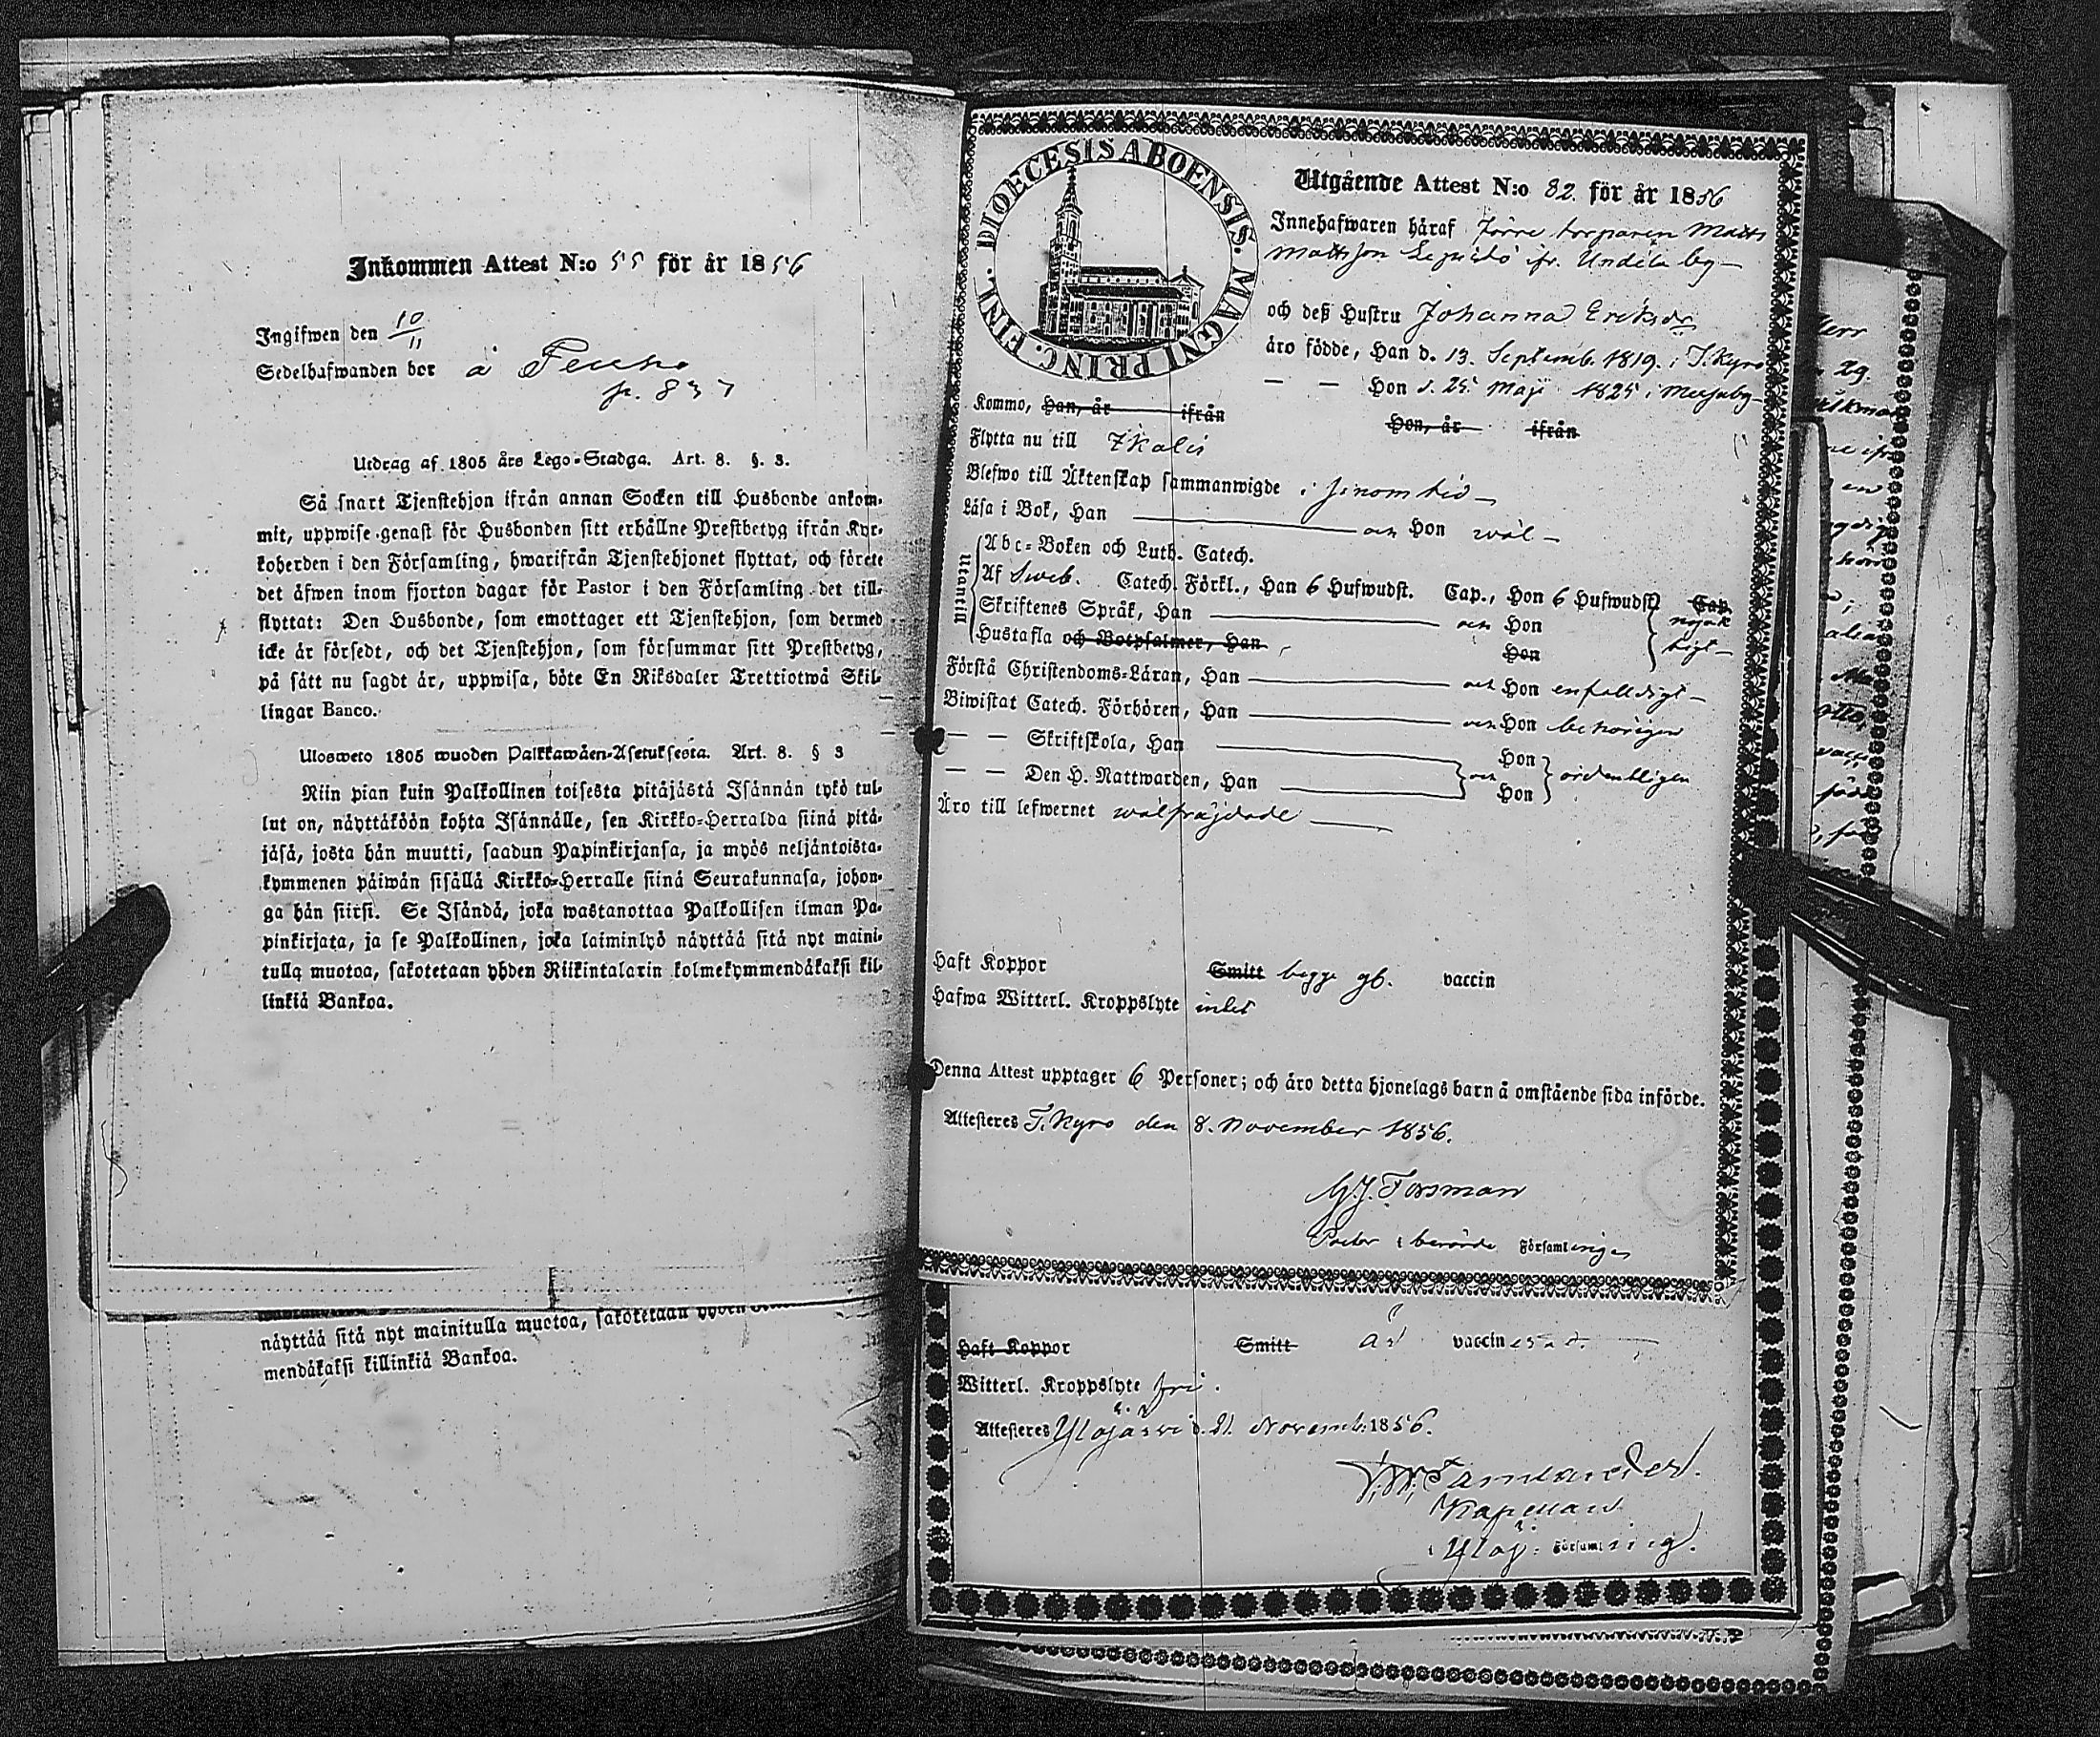 Inkommen Attest N:o 55 för år 1856
Ingifwen den 10/11
Sedelhafwanden bor å
p. 837
Utdrag af 1805 års Lego-Stadga. Art. 8. §. 3.
Så snart Tjenstehjon ifrån annan Socken till Husbonde ankom-
mit, uppwise genast för Husbonden sitt erhållne Prestbetyg ifrån Kyr-
koherden i den Församling, hwarifrån Tjenstehjonet flyttat, och förete
det äfwen inom fjorton dagar för Pastor i den Församling det till-
flyttat: Den Husbonde, som emottager ett Tjenstehjon, som dermed
icke är försedt, och det Tjenstehjon, som försummar sitt Prestbetyg,
på sätt nu sagdt är, uppwisa, böte En Riksdaler Trettiotwå Skil-
lingar Banco.
Uloswero 1805 wuoden Palkkawäen-Asetuksesta. Art. 8. § 3
Niin pian kuin Palkollinen toisesta pitäjästä Isännän tykö tul-
lut on, näyttäköön kohta Isännälle, sen Kirkko-Herralda siinä pitä-
jäsä, josta hän muutti, saadun Papinkirjansa, ja myös neljäntoista-
kymmenen päiwän sisällä Kirkko-Herralle siinä Seurakunnasa, johon-
ga hän siirsi. Se Isändä, joka wastanottaa Palkollisen ilman Pa-
pinkirjata, ja se Palkollinen, joka laiminlyö näyttää sitä nyt maini-
tulla muotoa, sakotetaan yhden Riikintalarin kolmekymmendäkaksi kil-
linkiä Bankoa.
näyttää sitä nyt mainitulla muotoa, sakotetaan yhden
mendäkaksi killinkiä Bankoa.
DIOECESIS ABOENSIS. MAGNI PRINC. FINL.
Utgående Attest N:o 82. för år 1856
Innehafwaren häraf förre torparen Matts
Mattsson ifr. Undila by
och deß Hustru Johanna Eriksdr
äro födde, Han d. 13. Septemb. 1819. i T. Kyro
— — Hon d. 25 Maji 1825 i
Kommo, Han, år ifrån Hon, år ifrån
Flytta nu till Ikalis
Blefwo till Äktenskap sammanwigde i sinom tid
Läsa i Bok, Han och Hon wäl
Utantill
Abc-Boken och Luth. Catech.
Af Sweb. Catech. Förkl., Han 6 Hufwudst. Cap., Hon 6 Hufwudst. Cap.
Skriftenes Språk, Han och Hon nöjak
Hustafla och Botpsalmer, Han Hon tigt
Förstå Christendoms-Läran, Han och Hon enfaldigt
Biwistat Catech. Förhören, Han och Hon behörigen
— — Skriftskola, Han Hon
— — Den H. Nattwarden, Han och Hon ordentligen
Äro till lefwernet wälfräjdade
Haft Koppor Smitt begge gb. vaccin
Hafwa Witterl. Kroppslyte intet
Denna Attest upptager 6 Personer; och äro detta hjonelags barn å omstående sida införde.
Attesteres T. Kyro den 8. November 1856.
G. J. Forsman
Pastor i berörde Församlingen
Haft Koppor Smitt är vaccinerad.
Witterl. Kroppslyte fri.
Attesteres Ylöjärvi d. 21. Novemb: 1856.
Kapellan
i Ylöj: Församling.